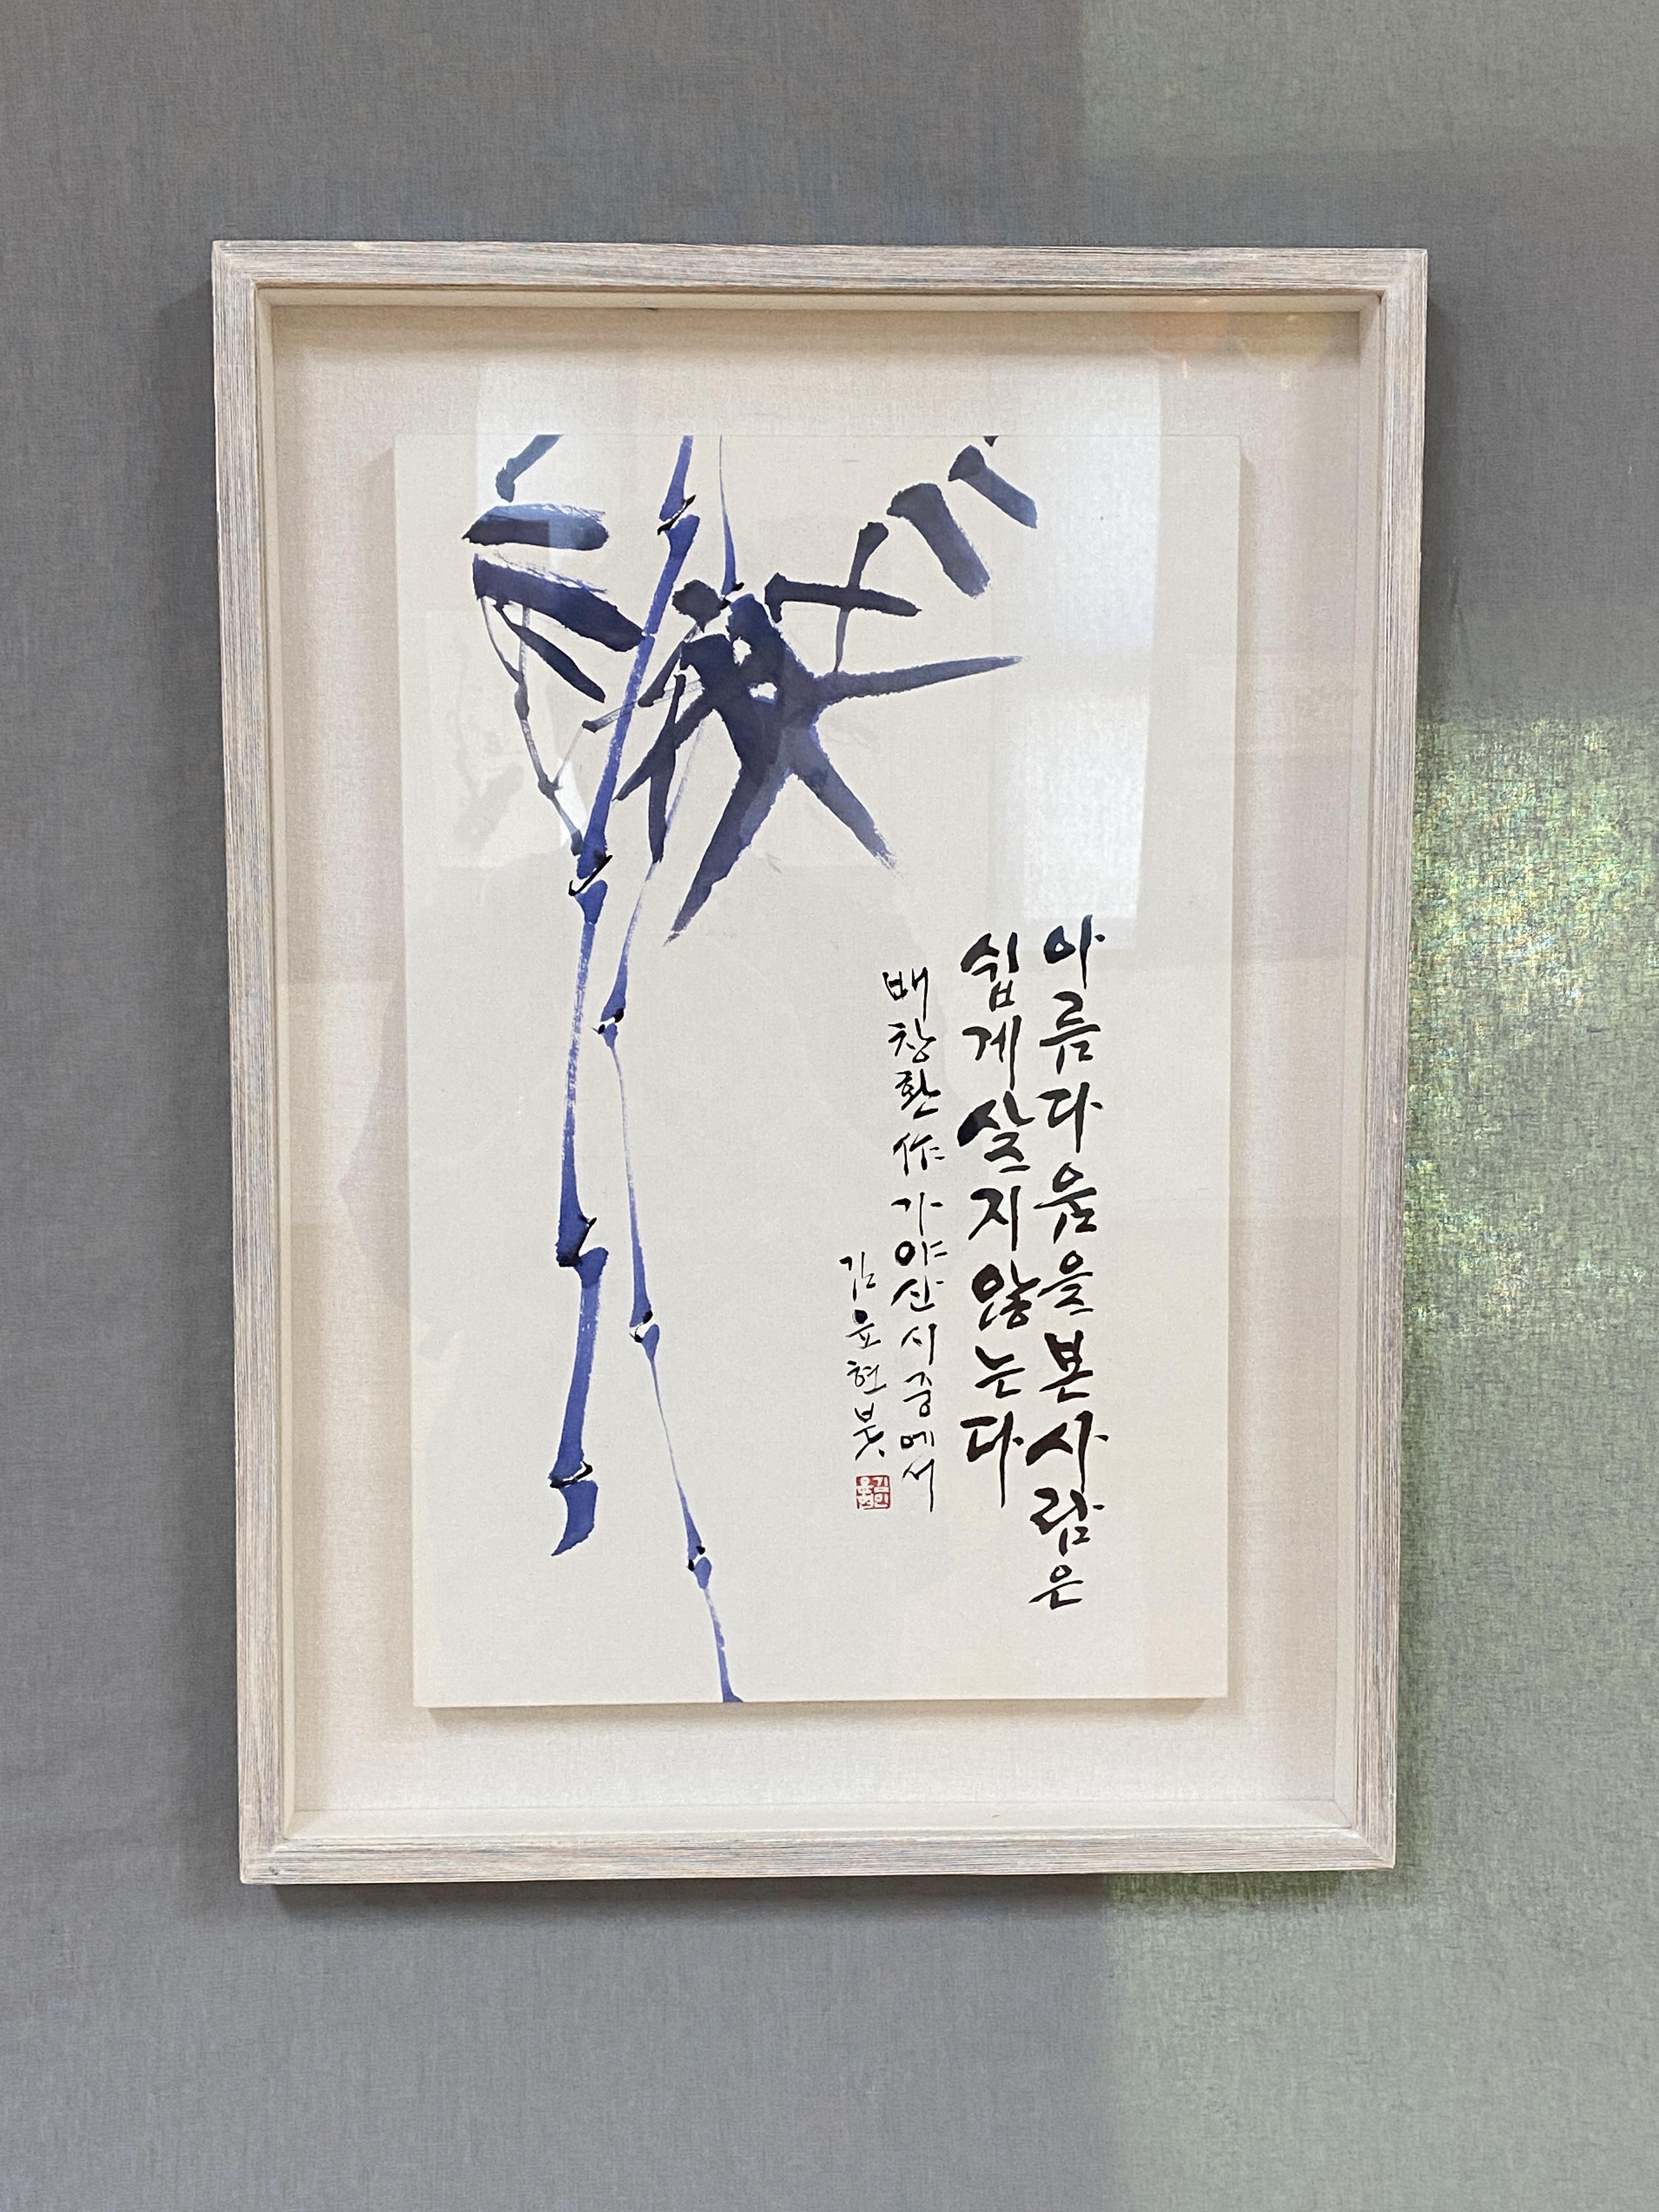 아름다움을 본 사람은
쉽게 살지 않는다
배창환 作 가야산 시 중에서
김윤현 붓